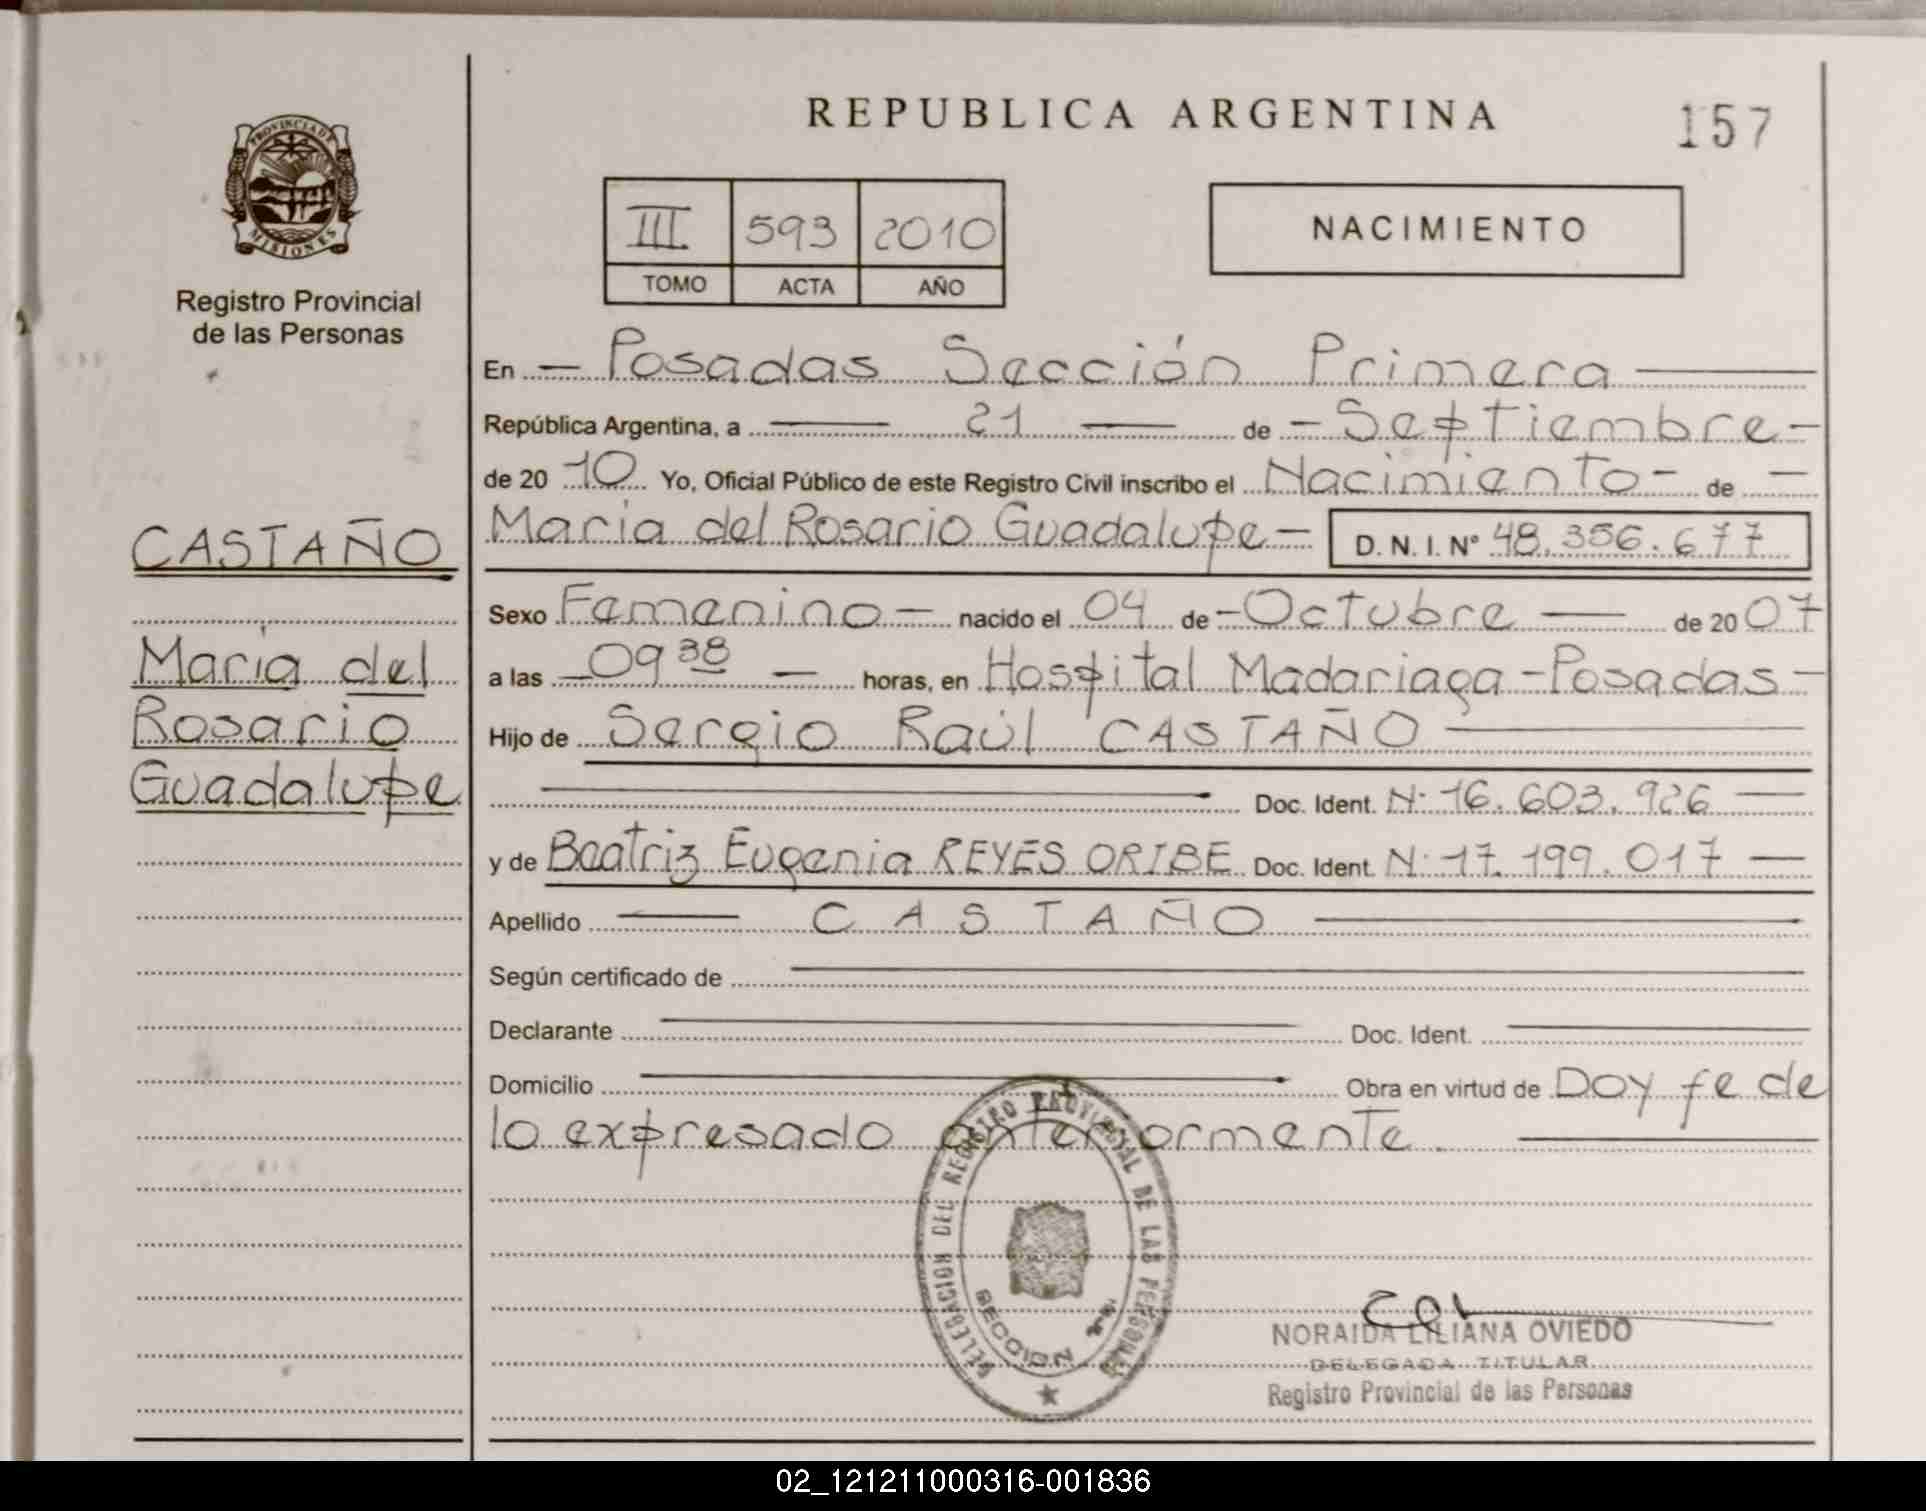 PROVINCIA DE
MISIONES
Registro Provincial
de las Personas
CASTAÑO
María del
Rosario
Guadalupe
REPUBLICA ARGENTINA
157
III 593 2010
TOMO ACTA AÑO
NACIMIENTO
En — Posadas Sección Primera —
República Argentina, a — 21 — de - Septiembre -
de 20 10 Yo, Oficial Público de este Registro Civil inscribo el Nacimiento - de -
María del Rosario Guadalupe - D. N. I. Nº 48.356.677
Sexo Femenino - nacido el 04 de - Octubre — de 20 07
a las - 09 38 - horas, en Hospital Madariaga - Posadas -
Hijo de Sergio Raúl CASTAÑO —
— Doc. Ident. N· 16.603.926 —
y de Beatriz Eugenia REYES ORIBE Doc. Ident. N· 17.199.017 —
Apellido — CASTAÑO —
Según certificado de —
Declarante — Doc. Ident. —
Domicilio — Obra en virtud de DOY fe de
lo expresado anteriormente. —
DELEGACION DEL REGISTRO PROVINCIAL DE LAS PERSONAS
SECCION 1a
NORAIDA LILIANA OVIEDO
DELEGADA TITULAR
Registro Provincial de las Personas
02_121211000316-001836